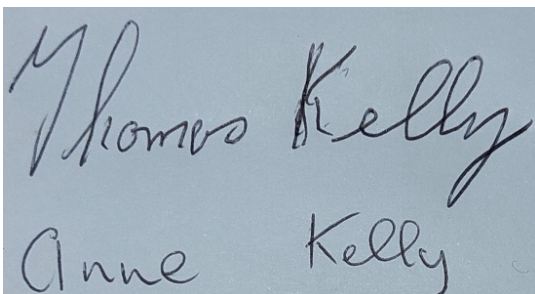 Thomas Kelly
Anne Kelly